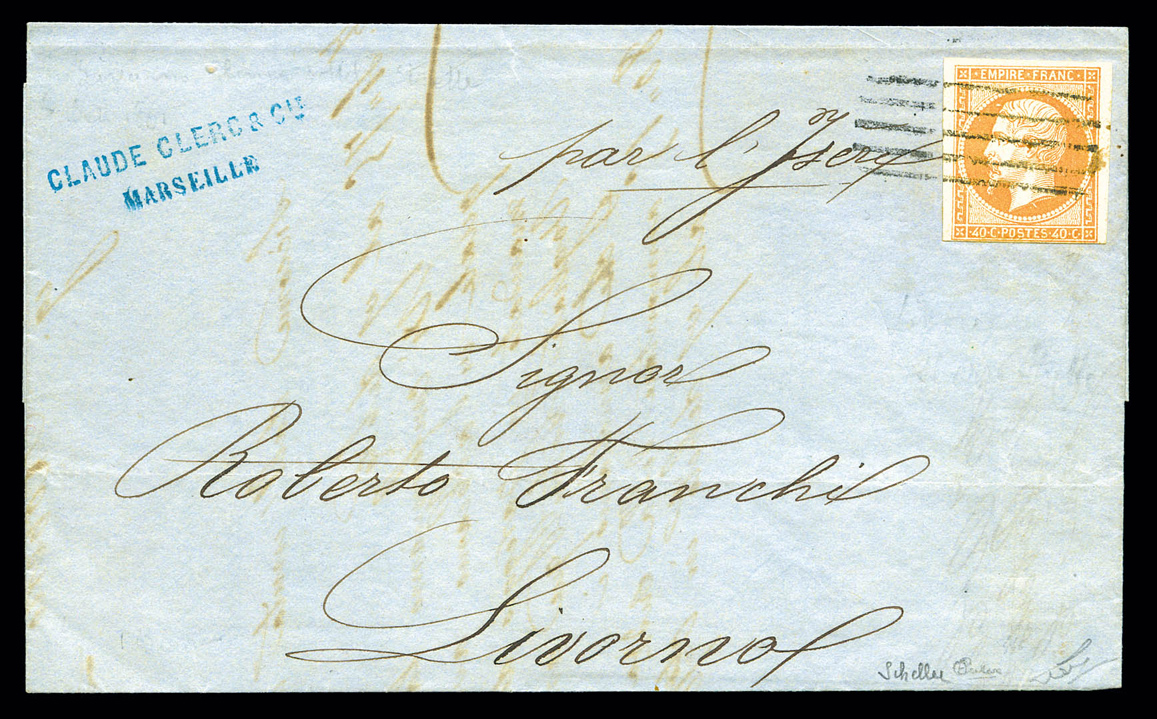 CLAUDE CLERC & CIE
MARSEILLE
par l'Isere
EMPIRE FRANC
40·C·POSTES·40·C·
Signor
Roberto Franchi
Livorno
Scheller